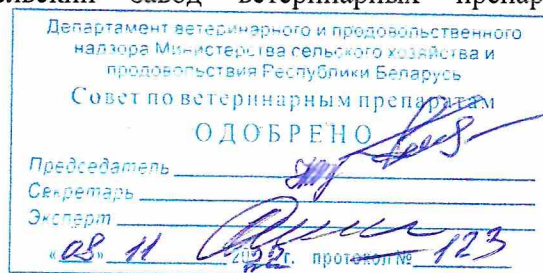 завод ветеринарных
Департамент ветеринарного и продовольственного
надзора Министерства сельского хозяйства и
продовольствия Республики Беларусь
Совет по ветеринарным препаратам
ОДОБРЕНО
Председатель
Секретарь
Эксперт
«08» 11 20 г. протокол № 123